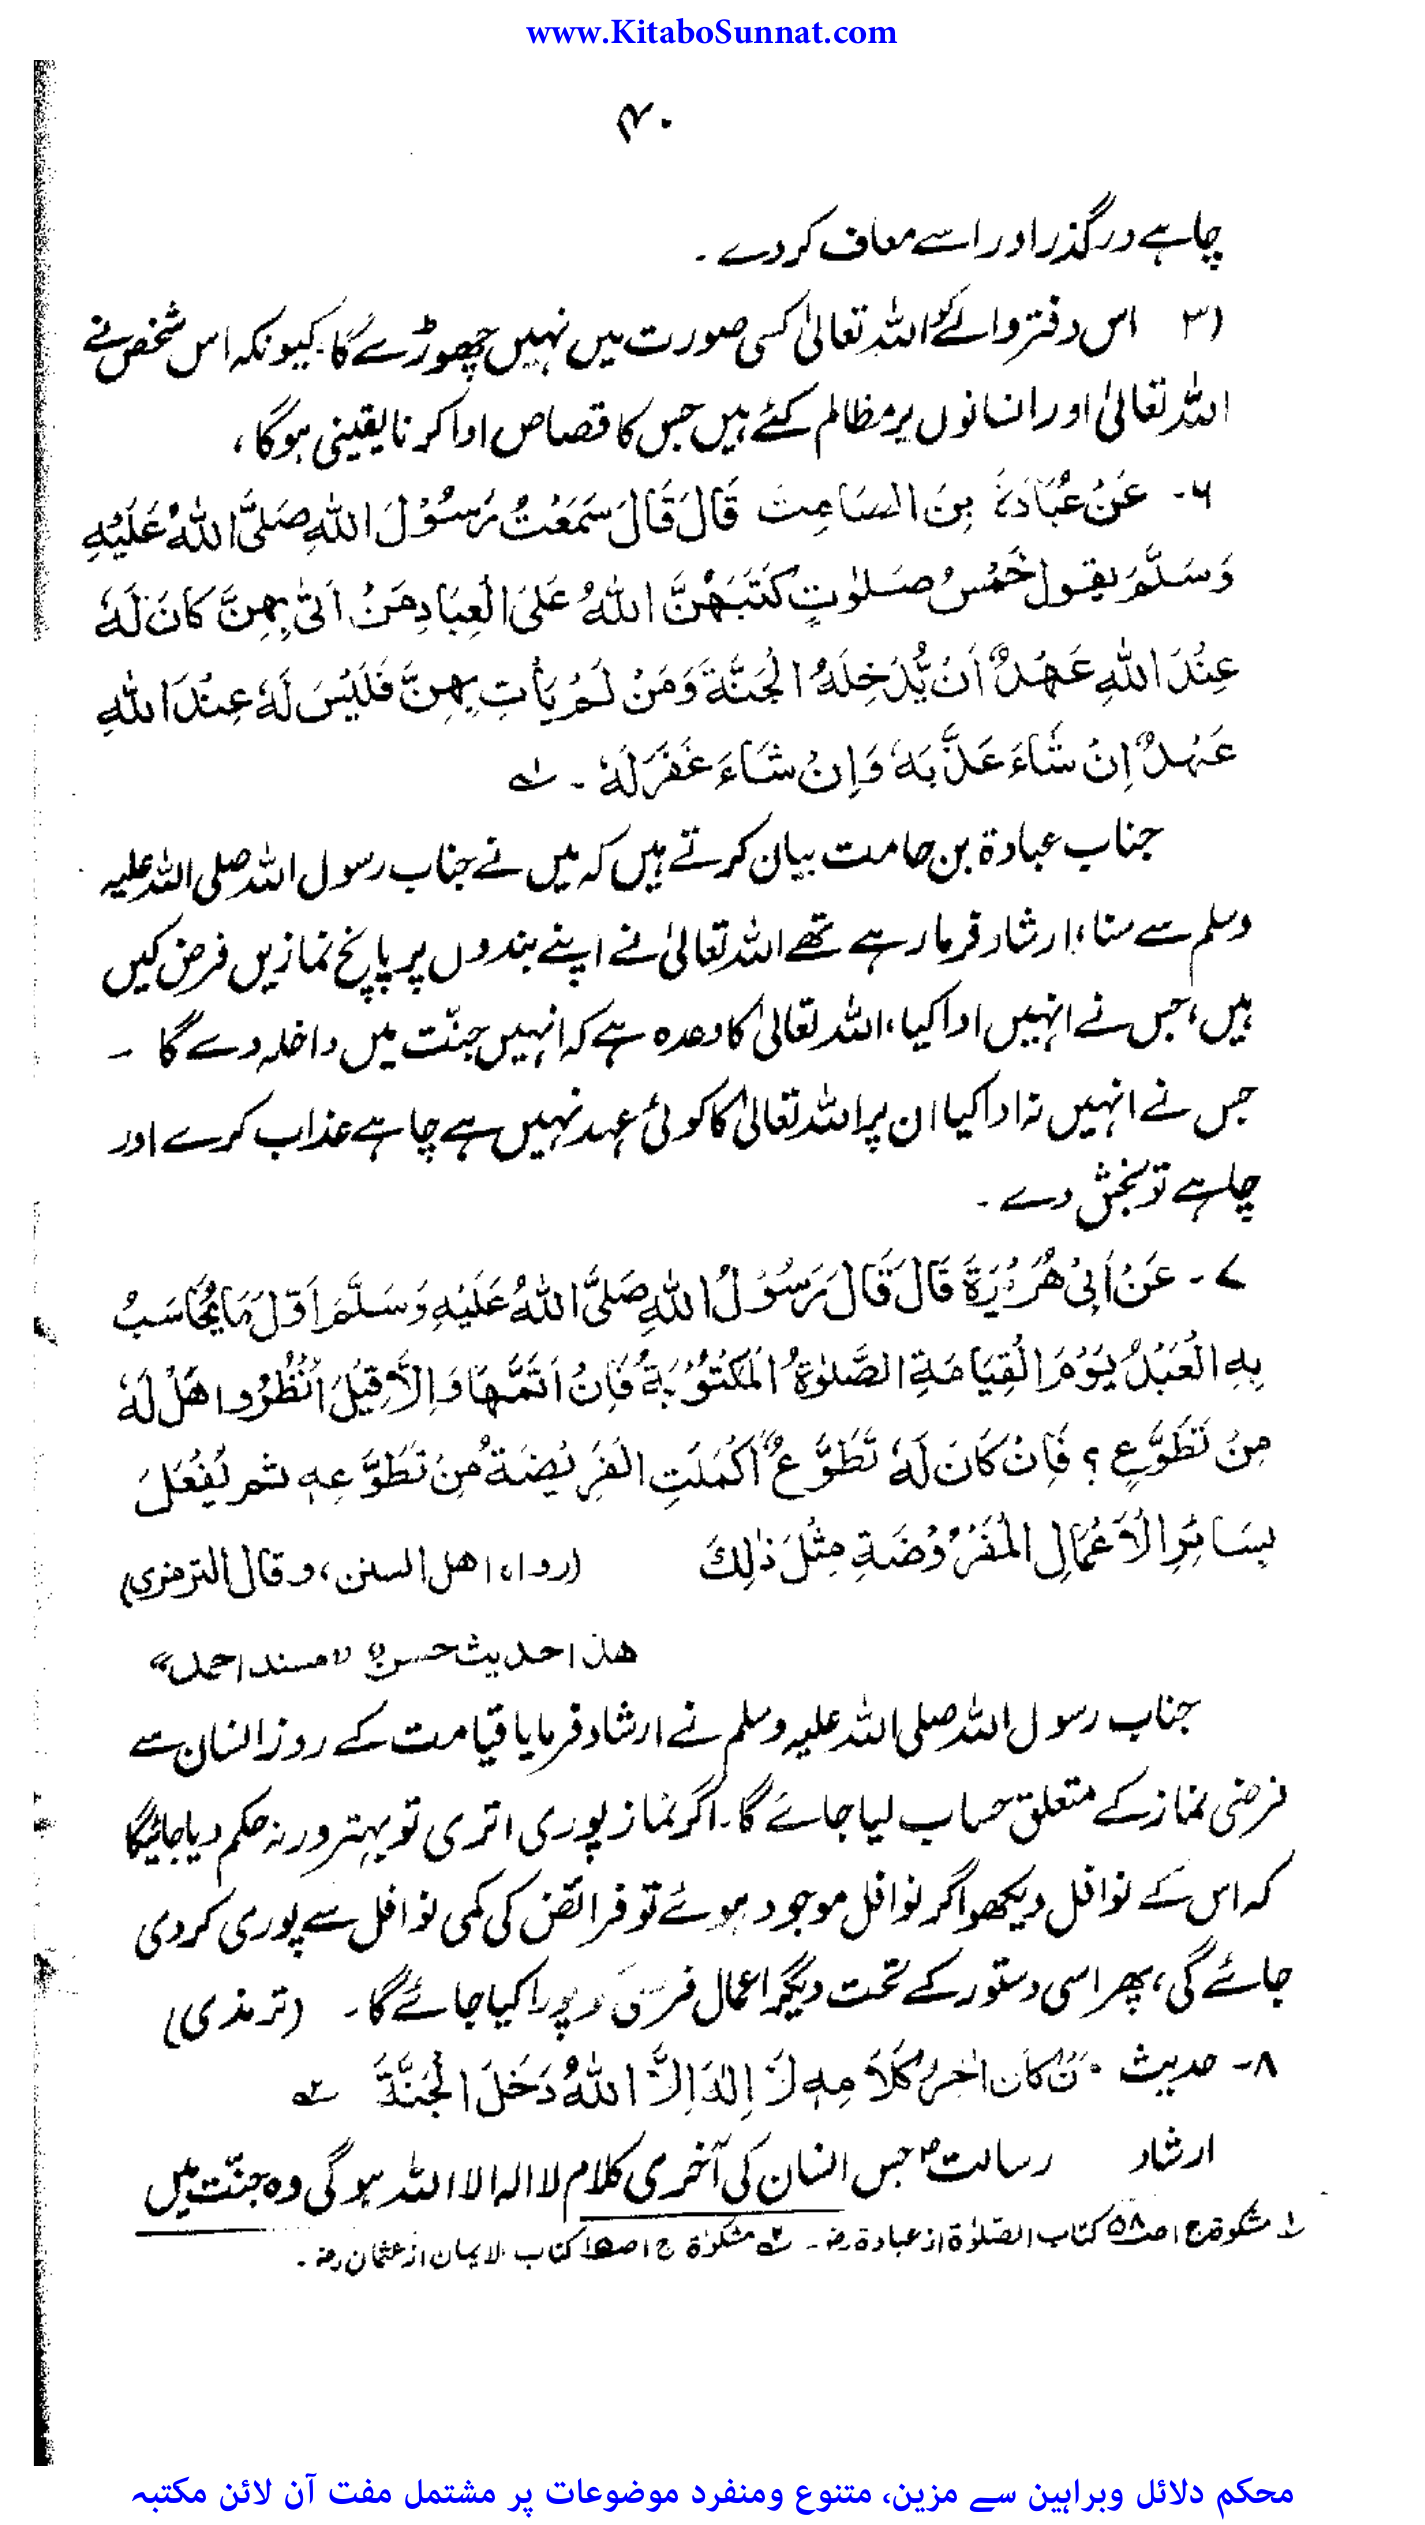 www.KitaboSunnat.com
۴۰
چاہے درگذر اور اسے معاف کردے ۔
۳) اس دفتر والے کو اللہ تعالیٰ کسی صورت میں نہیں چھوڑے گا۔ کیونکہ اس شخص نے
اللہ تعالیٰ اور انسانوں پر مظالم کئے ہیں جس کا قصاص ادا کرنا یقینی ہوگا ،
۶- عَنْ عُبَادَةَ بِنَ الصَامِتَ قَالَ قَالَ سَمَعْتُ رَسُوْلَ اللهِ صَلَّى اللهُ عَلَيْهِ
وَسَلَّمَ يقول خَمْسُ صَلوٰتٍ كَتَبَهُنَّ اللهُ عَلَى الْعِبَادِ مَنْ اَتٰى بِهِنَّ كَانَ لَهٗ
عِنْدَ اللهِ عَهْدٌ اَنْ يُّدْخِلَهُ الْجَنَّةَ وَمَنْ لَمْ يَأْتِ بِهِنَّ فَلَيْسَ لَهٗ عِنْدَ اللهِ
عَهْدٌ اِنْ شَاءَ عَذَّبَهٗ وَاِنْ شَاءَ غَفَرَ لَهٗ ۔ ۱؎
جناب عبادة بن صامت بیان کرتے ہیں کہ میں نے جناب رسول اللہ صلی اللہ علیہ
وسلم سے سنا ، ارشاد فرما رہے تھے اللہ تعالیٰ نے اپنے بندوں پر پانچ نمازیں فرض کیں
ہیں ، جس نے انہیں ادا کیا ، اللہ تعالیٰ کا وعدہ ہے کہ انہیں جنّت میں داخلہ دے گا ۔
جس نے انہیں نہ ادا کیا ان پر اللہ تعالیٰ کا کوئی عہد نہیں ہے چاہے عذاب کرے اور
چاہے تو بخش دے ۔
۷- عَنْ اَبِىْ هُرَيْرَةَ قَالَ قَالَ رَسُوْلُ اللهِ صَلَّى اللهُ عَلَيْهِ وَسَلَّمَ اَوَّلَ مَا يُحَاسَبُ
بِهِ الْعَبْدُ يَوْمَ الْقِيَامَةِ الصَّلٰوةُ الْمَكْتُوْبَةُ فَاِنْ اَتَمَّهَا وَاِلَّا قِيْلَ انْظُرُوا هَلْ لَهٗ
مِنْ تَطَوُّعٍ ؟ فَاِنْ كَانَ لَهٗ تَطَوُّعٌ اَكْمَلَتِ الْفَرِيْضَةُ مِنْ تَطَوُّعِهٖ ثم يُفْعَلَ
بِسَائِرِ الْاَعْمَالِ الْمَفْرُوْضَةِ مِثْلَ ذٰلِكَ (رواه اهل السنن ، وقال الترمزى)
هذا حديث حسن "مسند احمد"
جناب رسول اللہ صلی اللہ علیہ وسلم نے ارشاد فرمایا قیامت کے روز انسان سے
فرضی نماز کے متعلق حساب لیا جائے گا۔ اگر نماز پوری اتری تو بہتر ورنہ حکم دیا جائیگا
کہ اس کے نوافل دیکھو اگر نوافل موجود ہوئے تو فرائض کی کمی نوافل سے پوری کردی
جائے گی ، پھر اسی دستور کے تحت دیگر اعمال پورا کیا جائے گا ۔ (ترمذی)
۸- حدیث كَانَ اٰخِرُ كَلَامِهٖ لَا اِلٰهَ اِلَّا اللهُ دَخَلَ الْجَنَّةَ ۲؎
ارشاد رسالتؐ جس انسان کی آخری کلام لا الہ الا اللہ ہوگی وہ جنّت میں
۱؎ مشکوة ج ۱ ص ۵۸ کتاب الصّلوٰة از عبادة رض ۔ ۲؎ مشکوٰة ج ۱ ص ۱۵ کتاب الایمان از عثمان رض ۔
محکم دلائل وبراہین سے مزین، متنوع ومنفرد موضوعات پر مشتمل مفت آن لائن مکتبہ